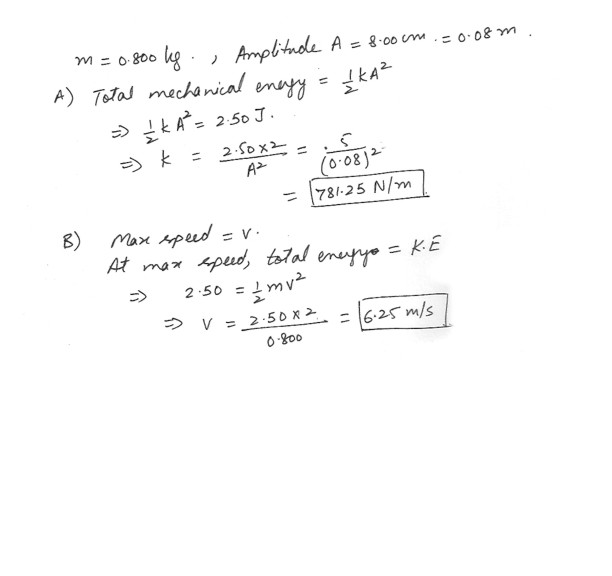 m = 0.800 kg. , Amplitude A = 8.00 cm. = 0.08 m.
A) Total mechanical energy = 1/2 kA²
⇒ 1/2 kA² = 2.50 J.
⇒ k = 2.50×2 / A² = 5 / (0.08)²
= 781.25 N/m
B) Max speed = v.
At max speed, total energy = K.E
⇒ 2.50 = 1/2 mv²
⇒ v = 2.50×2 / 0.800 = 6.25 m/s